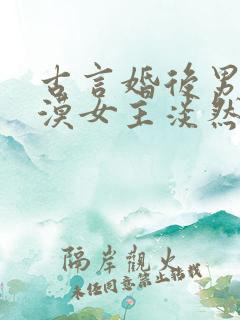 古言婚后男
漠女主淡然
隔岸觀火
未经同意禁止转载